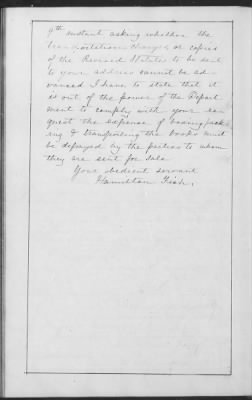 9th instant asking whether the
transportation charges on copies
of the Revised Statutes to be sent
to your address cannot be ad-
vanced I have to state that it
is out of the power of the Depart
ment to comply with your re-
quest the expense of boxing, pack
ing & transporting the books must
be defrayed by the parties to whom
they are sent for sale.
Your obedient servant
Hamilton Fish.